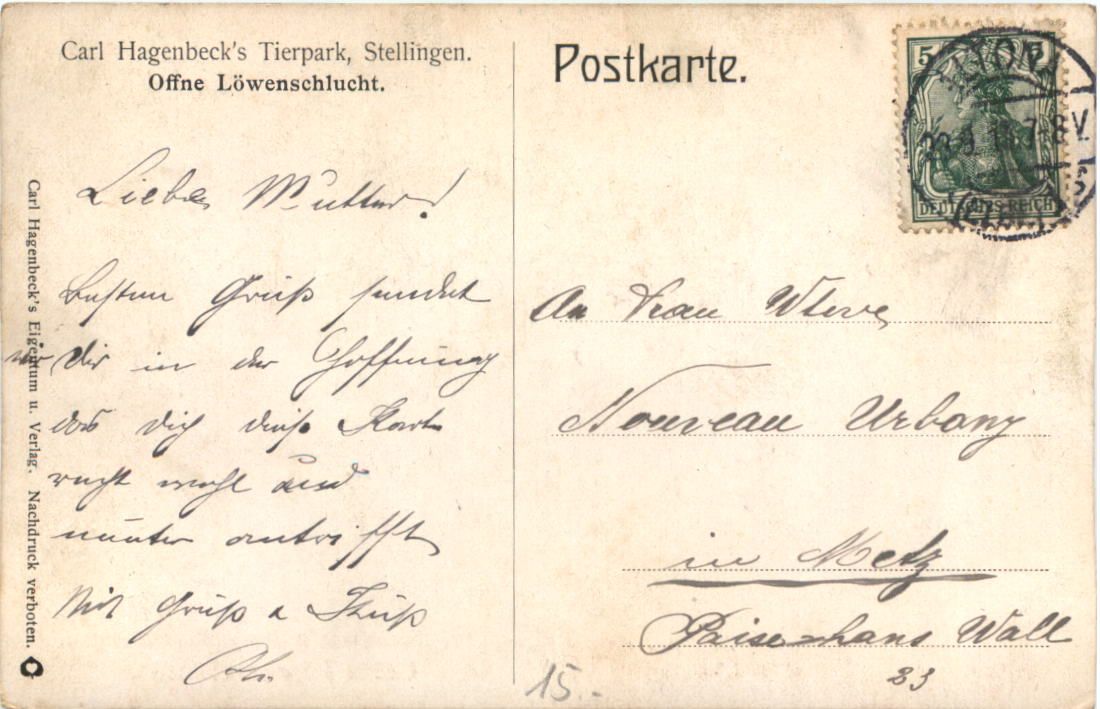 Carl Hagenbeck's Tierpark, Stellingen.
Offne Löwenschlucht.
Postkarte.
5 5
ALTONA
7-8V.
DEUTSCHES REICH
Carl Hagenbeck's Eigentum u. Verlag. Nachdruck verboten.
Liebe Mutter!
Besten Gruß sendet
wir Dir in der Hoffnung
das dich diese Karte
recht wohl und
munter antrifft
Mit Gruß u Kuß
An Frau Wtwe
Nouveau Urbany
in Metz
Paixhans Wall
23
15.-